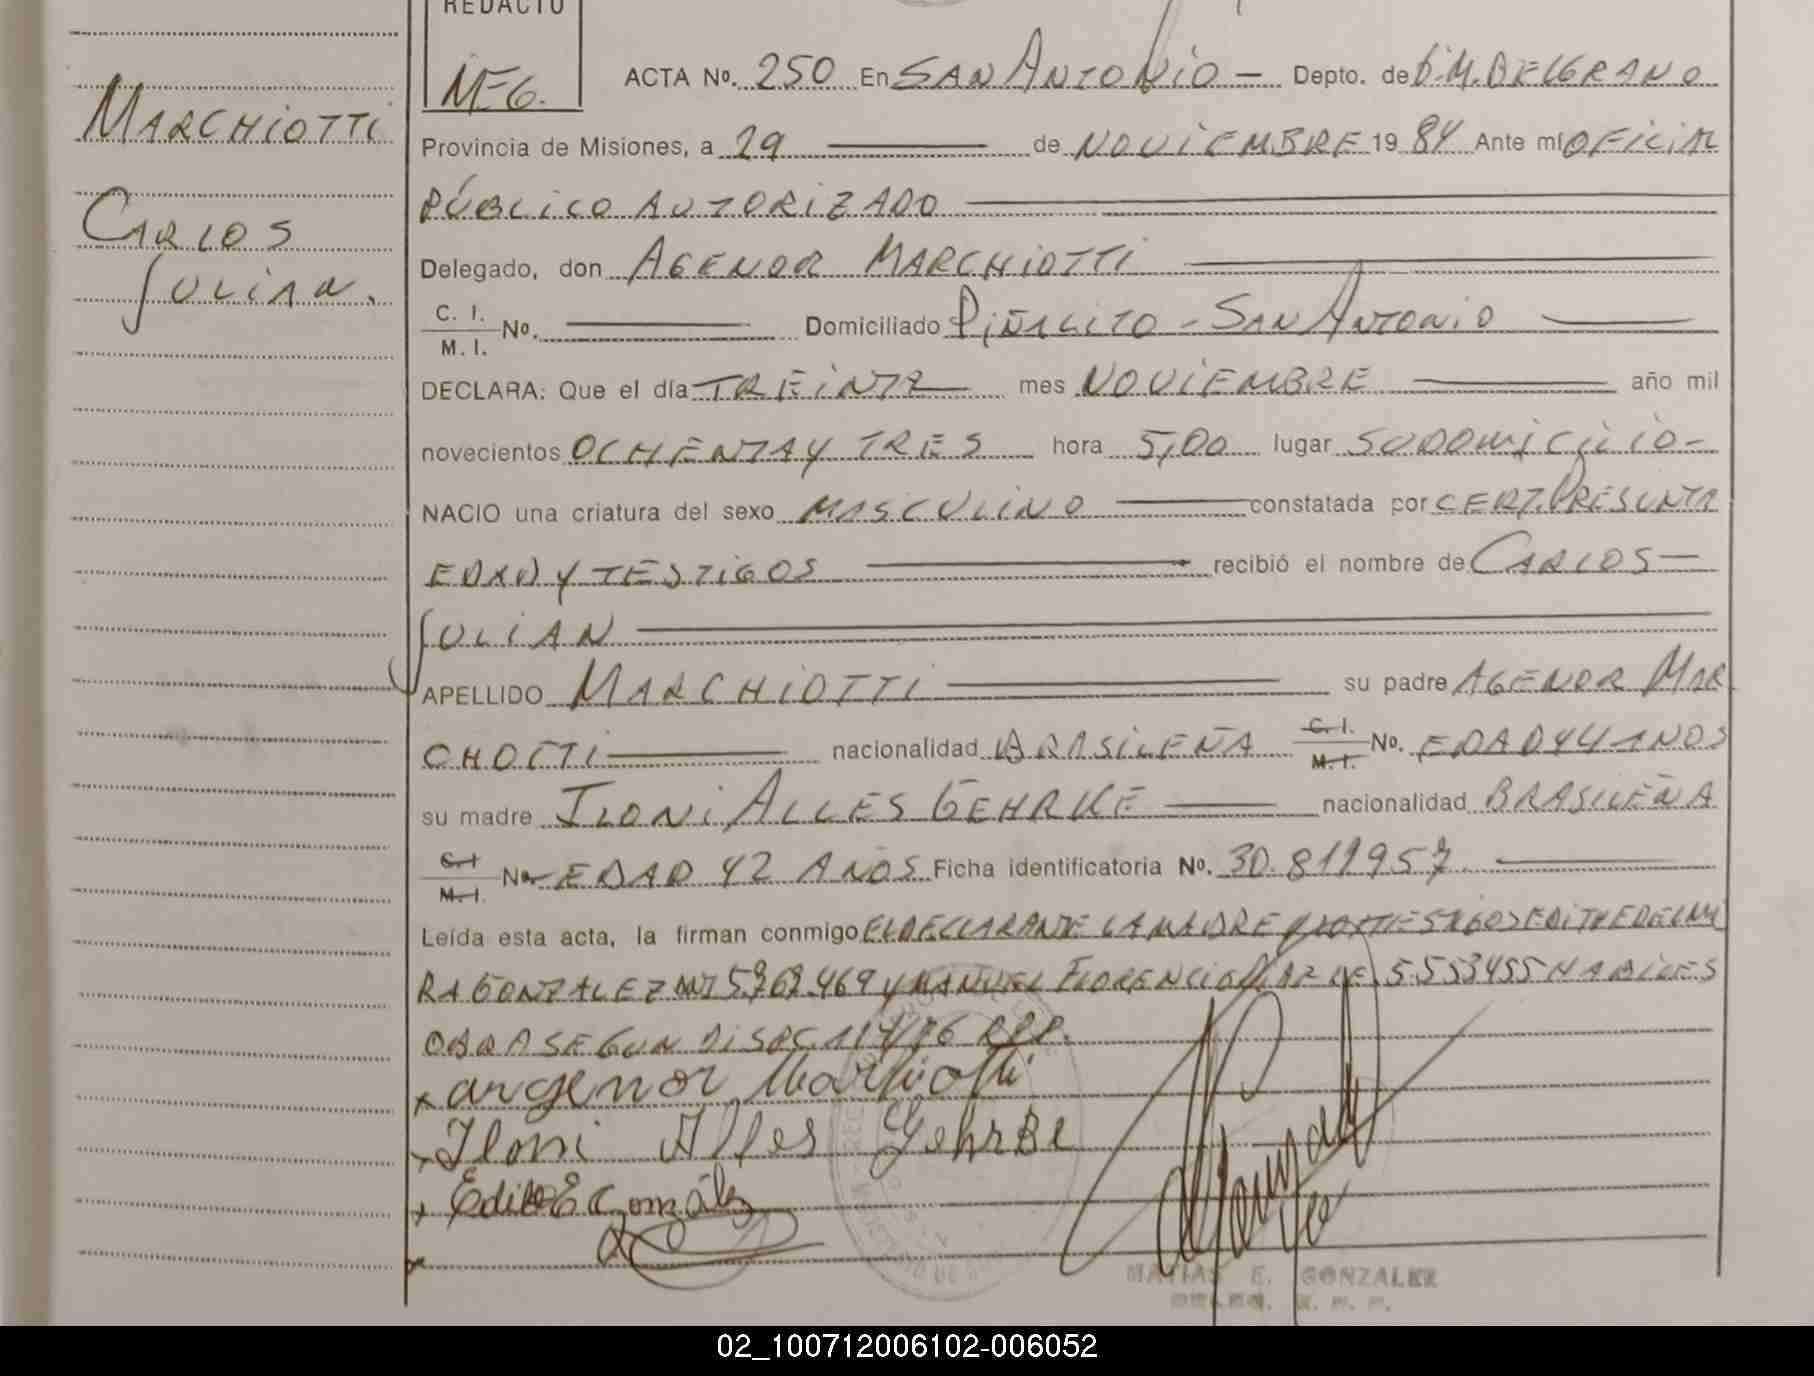 REDACTO
M E G.
MARCHIOTTI
CARLOS
JULIAN.
ACTA No. 250 En SAN ANTONIO — Depto. de G.M.BELGRANO
Provincia de Misiones, a 29 de NOVIEMBRE 19 84 Ante mí OFICIAL
PÚBLICO AUTORIZADO
Delegado, don AGENOR MARCHIOTTI
C. I.
M. I. No. Domiciliado PIÑALITO - SAN ANTONIO
DECLARA: Que el día TREINTA mes NOVIEMBRE año mil
novecientos OCHENTA Y TRES hora 5,00 lugar SU DOMICILIO-
NACIO una criatura del sexo MASCULINO constatada por CERT. PRESUNTA
EDAD Y TESTIGOS recibió el nombre de CARLOS —
JULIAN
APELLIDO MARCHIOTTI su padre AGENOR MAR
CHOTTI nacionalidad BRASILEÑA C. I. M. I. No. EDAD 44 ANOS
su madre ILONI ALLES GEHRKE nacionalidad BRASILEÑA
C. I M. I. No EDAD 42 AÑOS Ficha identificatoria No. 30.811957
Leída esta acta, la firman conmigo EL DECLARANTE LA MADRE TESTIGOS EDITH EDELMI
RA GONZALEZ MI 5.767.469 Y MANUEL FLORENCIO 5.553455 HABILES
OBRA SEGUN DISPC. 114/76 RPP.
x argenor Marhiotti
x Iloni Alles Gehrke
x Edith E González
x
MATIAS E. GONZALEZ
02_100712006102-006052